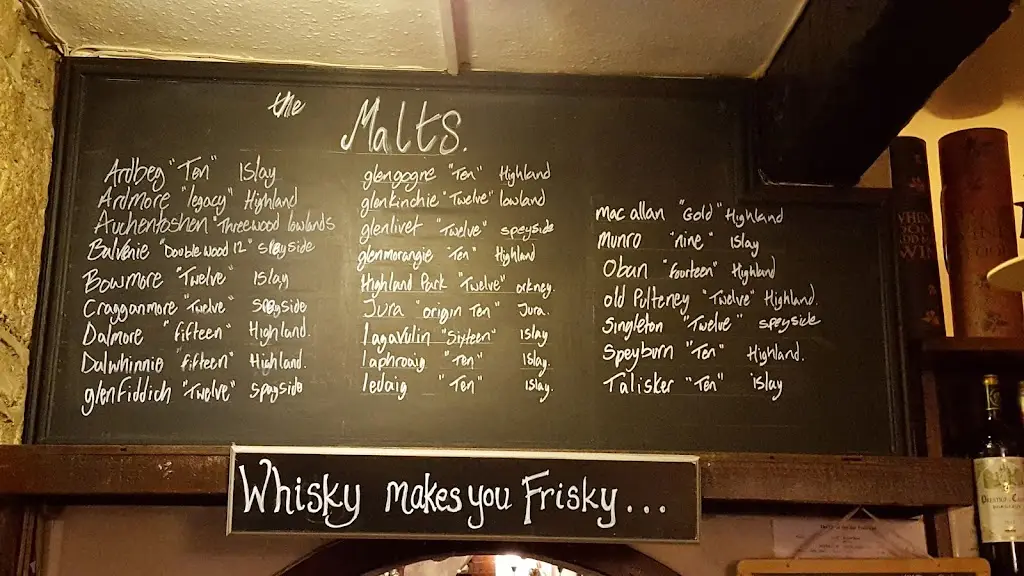 the Malts.
Ardbeg "Ten" Islay
Ardmore "legacy" Highland
Auchentoshen Threewood lowlands
Balvenie "Doublewood 12" speyside
Bowmore "Twelve" Islay
Cragganmore "Twelve" Speyside
Dalmore "fifteen" Highland.
Dalwhinnie "fifteen" Highland.
glenfiddich "Twelve" Speyside
glengogne "Ten" Highland
glenkinchie "Twelve" lowland
glenlivet "Twelve" speyside
glenmorangie "Ten" Highland
Highland Park "Twelve" orkney.
Jura "origin Ten" Jura.
lagavulin "Sixteen" Islay.
laphroaig "Ten" Islay.
ledaig "Ten" Islay.
mac allan "Gold" Highland
munro "nine" Islay
Oban "fourteen" Highland
old Pulteney "Twelve" Highland.
Singleton "Twelve" speyside
Speyburn "Ten" Highland.
Talisker "Ten" islay
Whisky makes you Frisky...